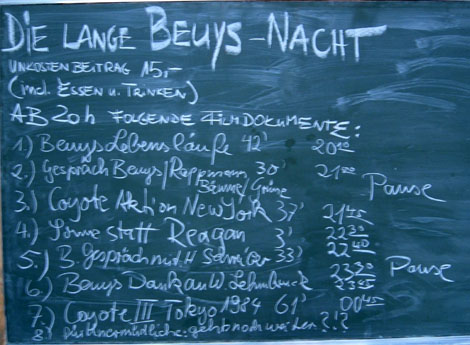 DIE LANGE BEUYS-NACHT
UNKOSTENBEITRAG 15,-
(incl. ESSEN u. TRINKEN)
AB 20h FOLGENDE FILMDOKUMENTE:
1.) Beuys Lebensläufe 42' 20
2.) Gespräch Beuys/Rappmann 30' 21
Bäume/Grüne Pause
3.) Coyote Aktion New York 37' 21 45
4.) Sonne statt Reagan 3' 22 30
5.) B. Gespräch mit H 33' 22 40
23 20 Pause
6.) Beuys Dank an W. Lehmbruck 23
7.) Coyote III Tokyo 1984 61' 00 45
8.) geht noch weiter?!?